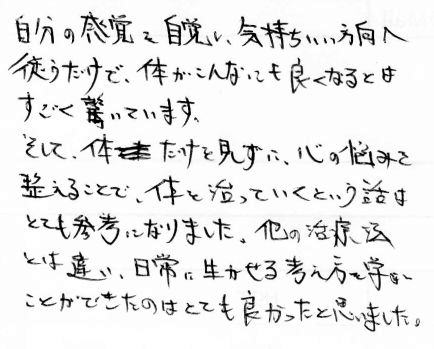 自分の感覚を自覚し、気持ちいい方向へ
従うだけで、体がこんなにも良くなるとは
すごく驚いています。
そして、体だけを見ずに、心の悩みを
整えることで、体も治っていくという話は
とても参考になりました。他の治療法
とは違い、日常に生かせる考え方を学ぶ
ことができたのはとても良かったと思いました。